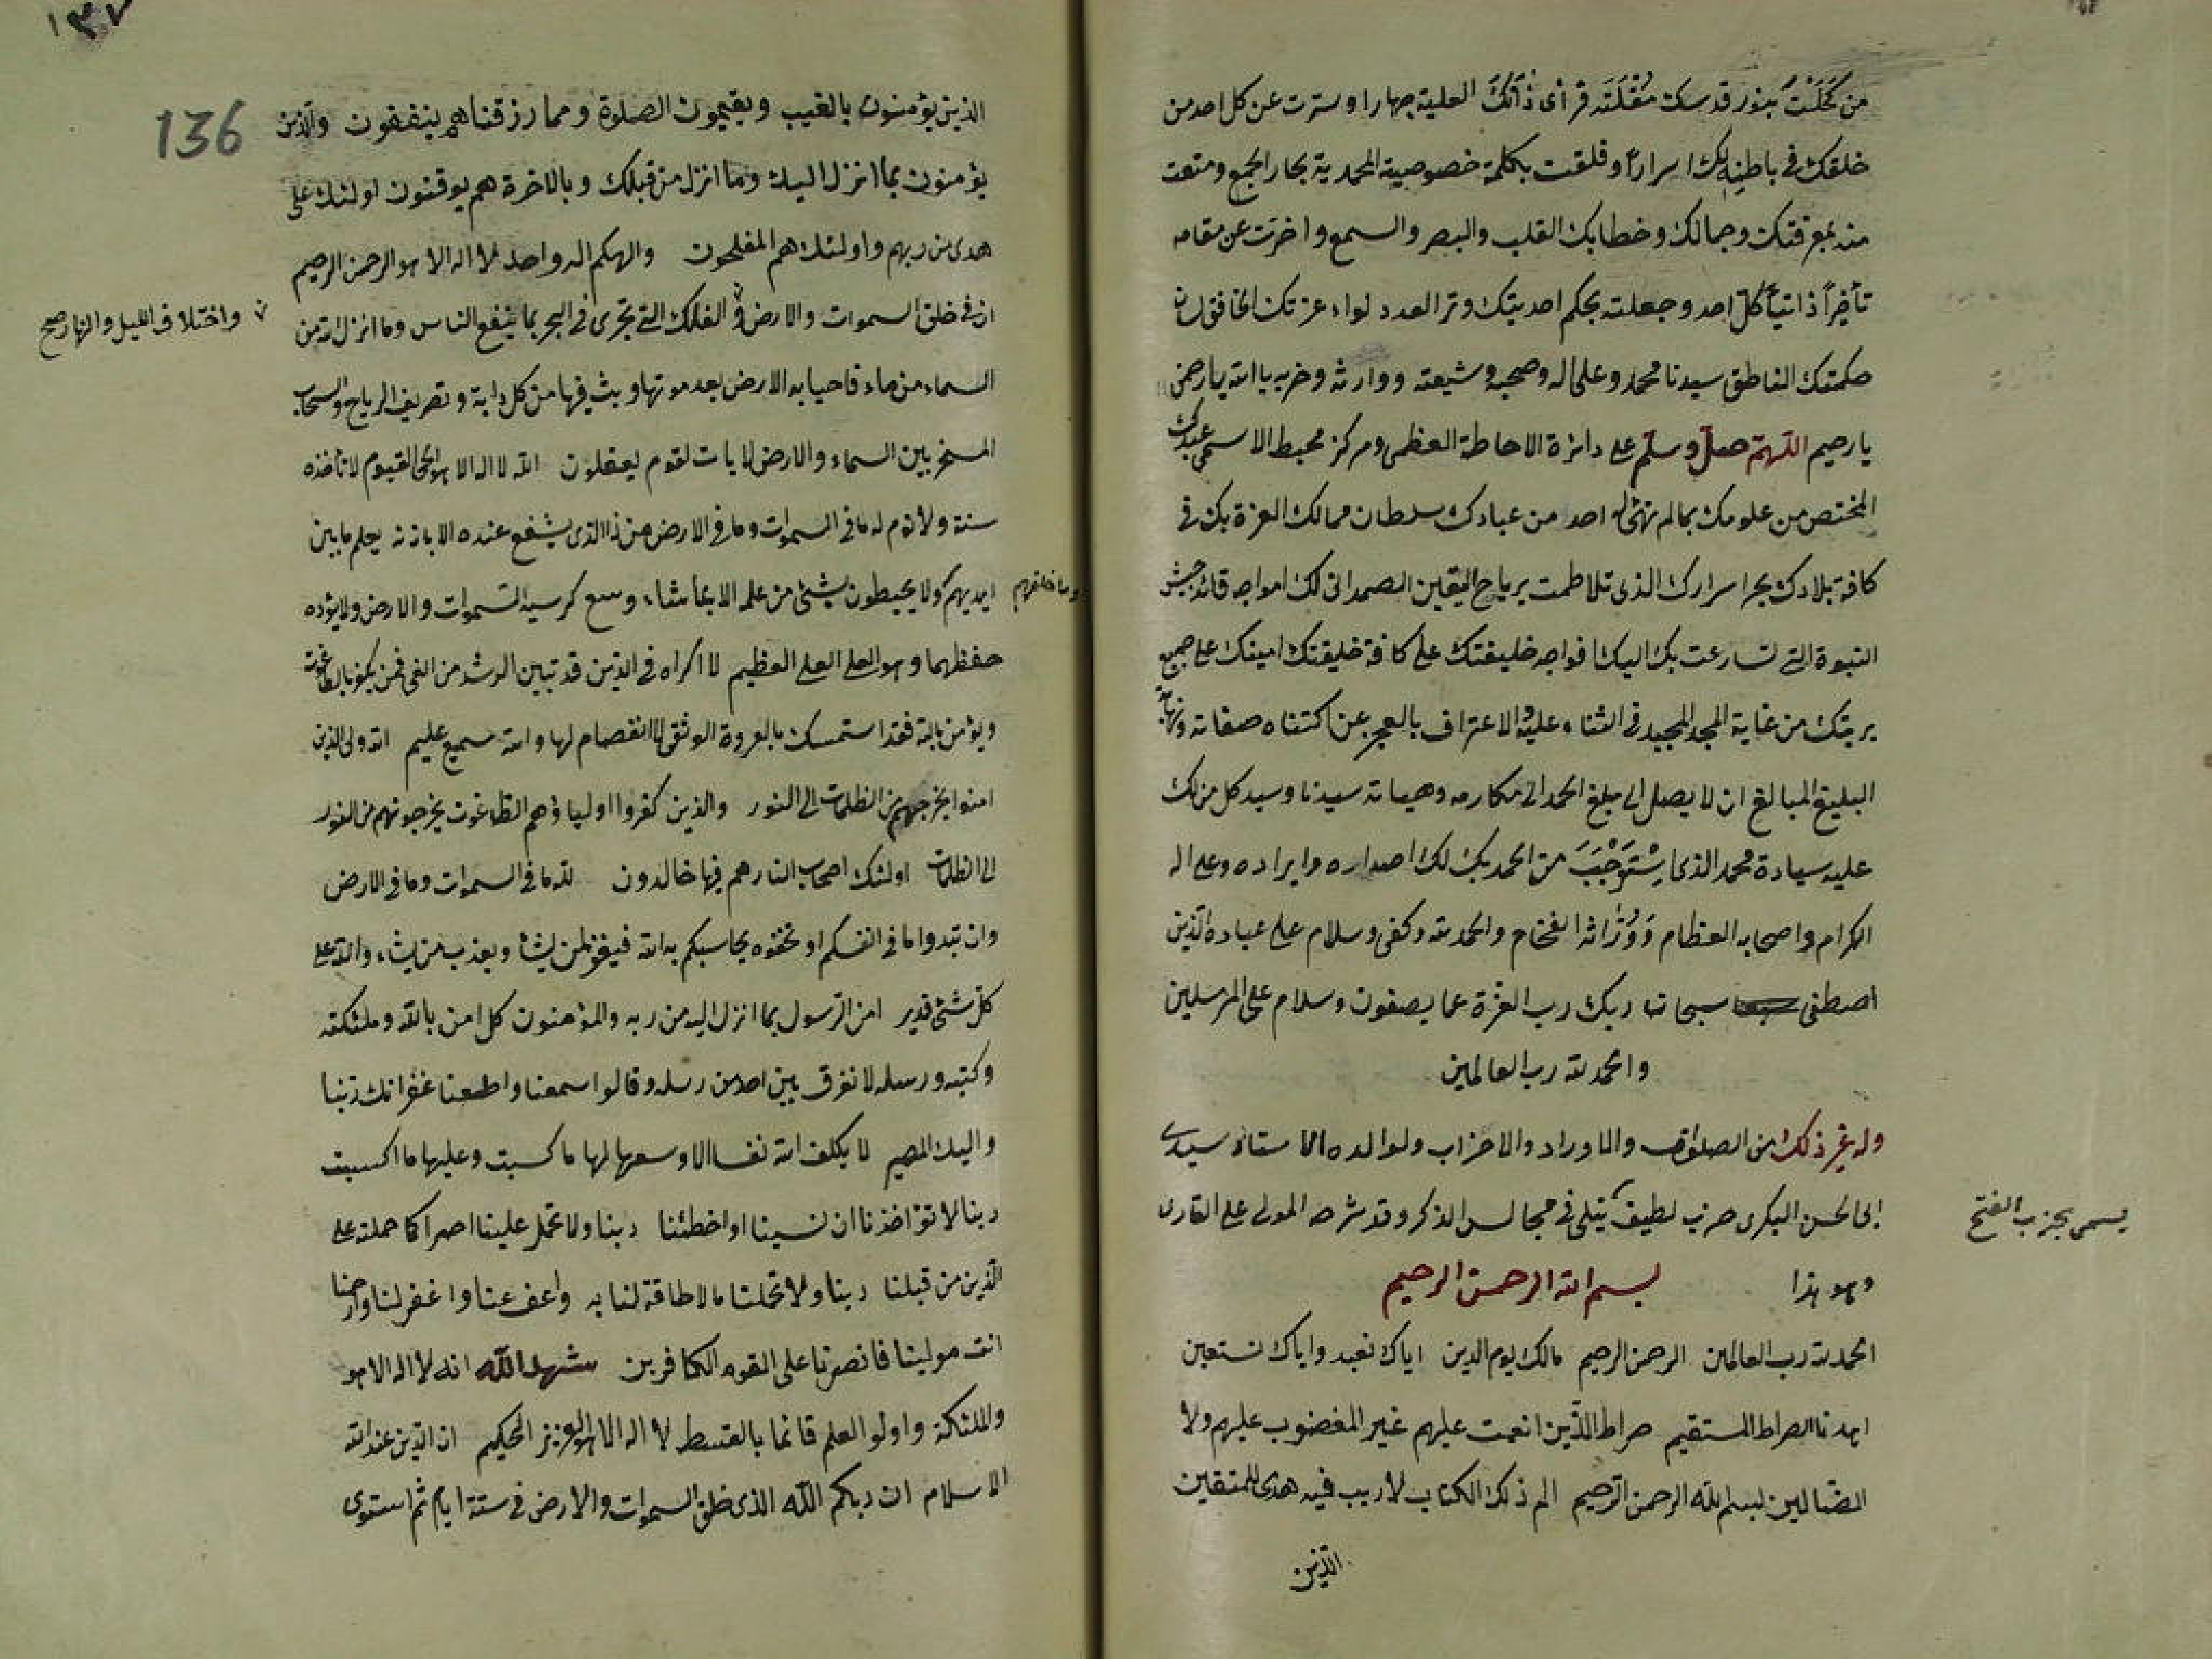 من كَحَلْتَ بنور قدسك مُقْلَتَه فرأى ذَاتَكَ العلية جهارا وسترت عن كل احد من
خلقك في باطنه لك اسراراً وفلقت بكلمة خصوصية المحمدية بحار الجمع ومتعت
منه بمعرفتك وجمالك وخطابك القلب والبصر والسمع واخرت عن مقامه
تأخيراً ذاتياً كل احد وجعلته بحكم احديتك وتر العدد لواء عزتك الخافق لسان
حكمتك الناطق سيدنا محمد وعلى اله وصحبه وشيعته ووارثه وحزبه يا الله يا رحمن
يا رحيم اللهم صل وسلم على دائرة الاحاطة العظمى ومركز محيط الاسمى عبدك
المختص من علومك بما لم تهئ له احد من عبادك سلطان ممالك العزة بك في
كافة بلادك بحر اسرارك الذى تلاطمت برياح اليقين الصمدانى لك امواجه قائد جيش
النبوة التى تسارعت بك اليك افواجه خليفتك على كافة خليقتك امينك على جميع
بريتك من غاية المجد المجيد فى الثناء عليه الاعتراف بالعجز عن اكتناه صفاته ونهاية
البليغ المبالغ ان لا يصل الى مبلغ الحمد الى مكارمه وهباته سيدنا وسيد كل من لك
عليه سيادة محمد الذى اِسْتَوْجَبَ من الحمد بك لك اصداره وايراده وعلى اله
الكرام واصحابه العظام وَوُرَّاثه الفخام والحمد لله وكفى وسلام على عباده الذين
اصطفى سبحان ربك رب العزة عما يصفون وسلام على المرسلين
والحمد لله رب العالمين
وله غير ذلك من الصلوات والاوراد والاحزاب ولوالده الاستاذ سيدى
ابى الحسن البكرى حزب لطيف يتلى فى مجالس الذكر وقد شرحه المولى على القارى
يسمى بحزب الفتح
وهو هذا بسم الله الرحمن الرحيم
الحمد لله رب العالمين الرحمن الرحيم مالك يوم الدين اياك نعبد واياك نستعين
اهدنا الصراط المستقيم صراط الذين انعمت عليهم غير المغضوب عليهم ولا
الضالين بسم الله الرحمن الرحيم الم ذلك الكتاب لا ريب فيه هدى للمتقين
الذين
١٣٧
136
الذين يؤمنون بالغيب ويقيمون الصلوة ومما رزقناهم ينفقون والذين
يؤمنون بما انزل اليك وما انزل من قبلك وبالاخرة هم يوقنون اولئك على
هدى من ربهم واولئك هم المفلحون والهكم اله واحد لا اله الا هو الرحمن الرحيم
ان فى خلق السموات والارض والفلك التى تجرى فى البحر بما ينفع الناس وما انزل الله من
واختلاف الليل والنهار صح
السماء من ماء فاحيا به الارض بعد موتها وبث فيها من كل دابة وتصريف الرياح والسحاب
المسخر بين السماء والارض لايات لقوم يعقلون الله لا اله الا هو الحى القيوم لا تأخذه
سنة ولا نوم له ما فى السموات وما فى الارض من ذا الذى يشفع عنده الا باذنه يعلم ما بين
ايديهم ولا يحيطون بشئ من علمه الا بما شاء وسع كرسيه السموات والارض ولا يؤده
وما خلفهم
حفظهما وهو العلى العلى العظيم لا اكراه فى الدين قد تبين الرشد من الغى فمن يكفر بالطاغوت
ويؤمن بالله فقد استمسك بالعروة الوثقى لا انفصام لها والله سميع عليم الله ولى الذين
امنوا يخرجهم من الظلمات الى النور والذين كفروا اولياؤهم الطاغوت يخرجونهم من النور
الى الظلمات اولئك اصحاب النار هم فيها خالدون لله ما فى السموات وما فى الارض
وان تبدوا ما فى انفسكم او تخفوه يحاسبكم به الله فيغفر لمن يشاء ويعذب من يشاء والله على
كل شئ قدير امن الرسول بما انزل اليه من ربه والمؤمنون كل امن بالله وملئكته
وكتبه ورسله لا نفرق بين احد من رسله وقالوا سمعنا واطعنا غفرانك ربنا
واليك المصير لا يكلف الله نفسا الا وسعها لها ما كسبت وعليها ما اكتسبت
ربنا لا تؤاخذنا ان نسينا او اخطئنا ربنا ولا تحمل علينا اصرا كما حملته على
الذين من قبلنا ربنا ولا تحملنا ما لا طاقة لنا به واعف عنا واغفر لنا وارحمنا
انت مولينا فانصرنا على القوم الكافرين شهد الله انه لا اله الا هو
والملئكة واولو العلم قائما بالقسط لا اله الا هو العزيز الحكيم ان الدين عند الله
الاسلام ان ربكم الله الذى خلق السموات والارض فى ستة ايام ثم استوى